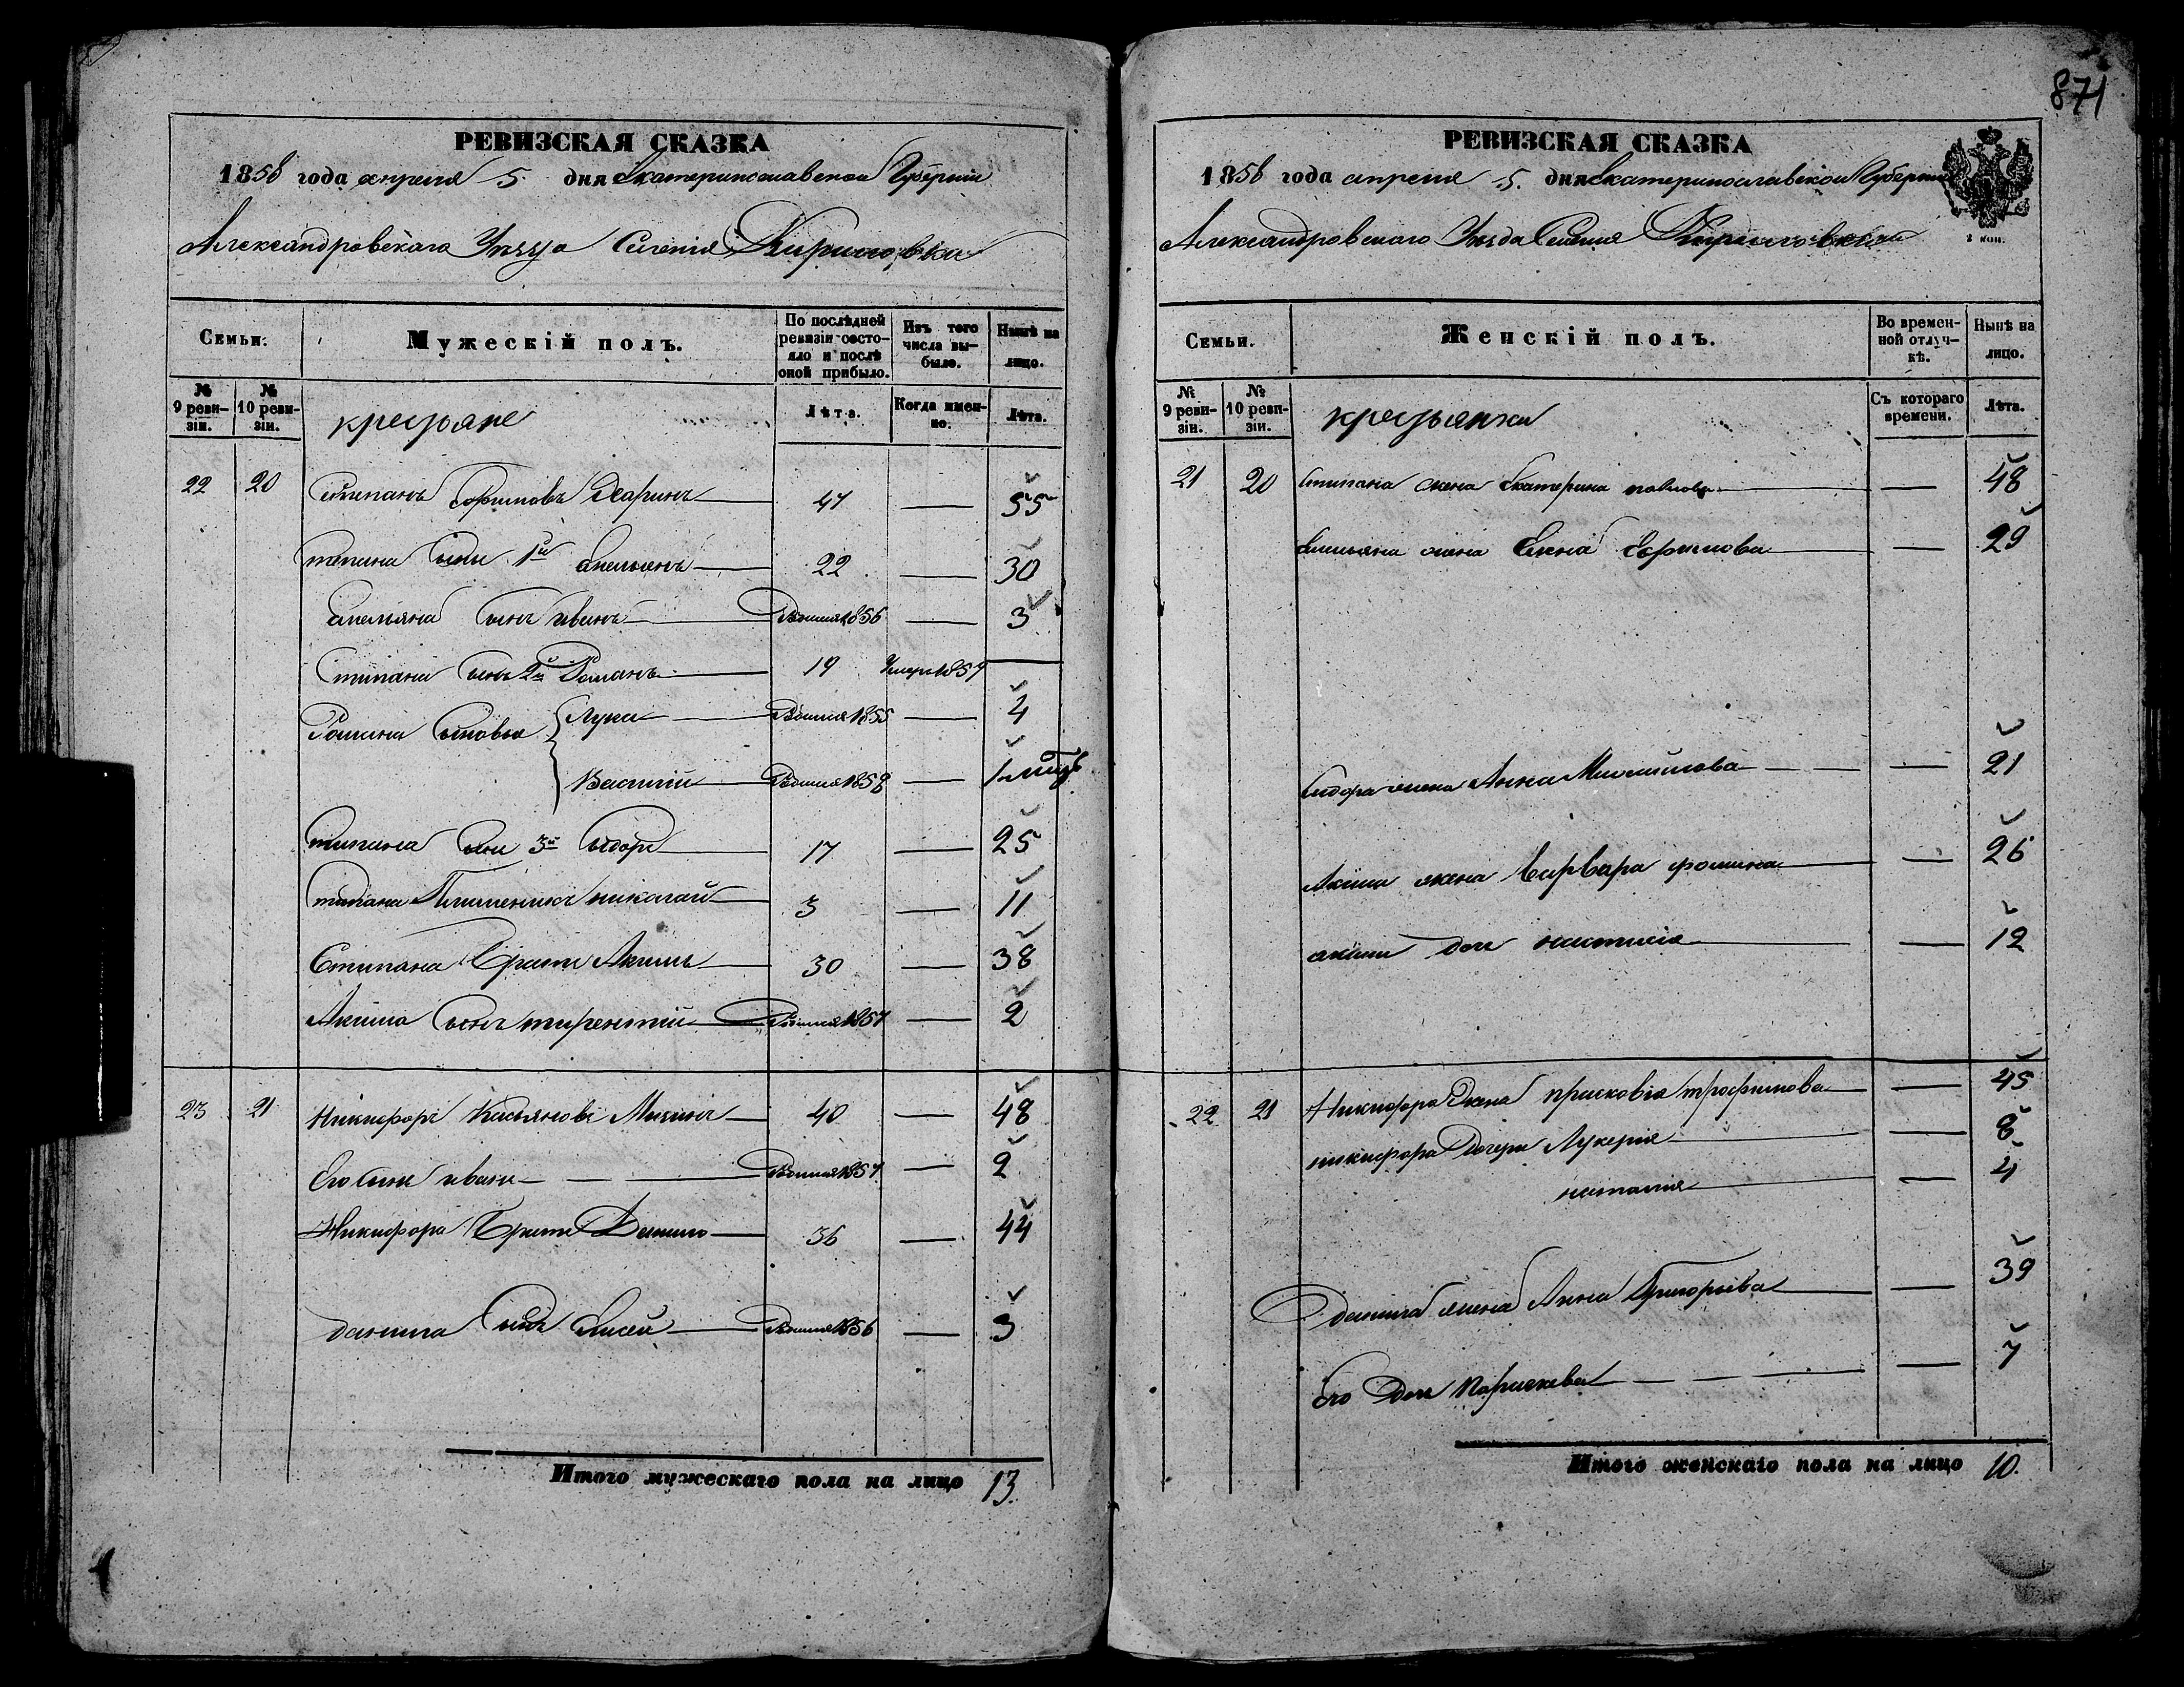 871
РЕВИЗСКАЯ СКАЗКА
1858 года апреля 5 дня Екатеринославской Губернии
Александровского Уезда Селения Кириловки
Семьи.
Мужескій полъ.
По послѣдней ревизіи состояло и послѣ оной прибыло.
Изъ того числа выбыло.
Нынѣ на лицо.
№ 9 ревизіи.
№ 10 ревизіи.
крестьяне
Лѣта.
Когда именно.
Лѣта.
22 20 Степанъ Ефимовъ 47 — 55
Степана сынъ 1й Емельянъ 22 — 30
Емельяна сынъ иванъ 1856 — 3
Степана сынъ 2й Романъ 19 Умеръ 1857 —
Романа сыновья Лука 1855 — 4
Василий 1858 —
Степана сынъ 3й Сидоръ 17 — 25
Степана Племенникъ николай 3 — 11
Степана Братъ Акимъ 30 — 38
Акима сынъ терентий 1857 — 2
23 21 Никифоръ Касьяновъ 40 — 48
Его сынъ иванъ 1857 — 2
Никифора Братъ Данило 36 — 44
данила сынъ Елисей 1856 — 3
Итого мужескаго пола на лицо 13.
РЕВИЗСКАЯ СКАЗКА
1858 года апреля 5. дня Екатеринославской Губернии
Александровского Уезда Селения Кириловки
2 коп.
Семьи.
Женскій полъ.
Во временной отлучкѣ.
Нынѣ на лицо.
№ 9 ревизіи.
№ 10 ревизіи.
крестьянки
Съ котораго времени.
Лѣта.
21 20 Степана жена Екатерина павлова — 48
Емельяна жена Елена Ефимова — 29
Сидора жена Анна — 21
Акима жена Варвара фомина — 26
акима дочь настасия — 12
22 21 Никифора жена прасковия трофимова — 45
никифора Дочери Лукерия — 8
наталия — 4
Данила жена Анна Григорьева — 39
Его Дочь Параскева — 7
Итого женскаго пола на лицо 10.